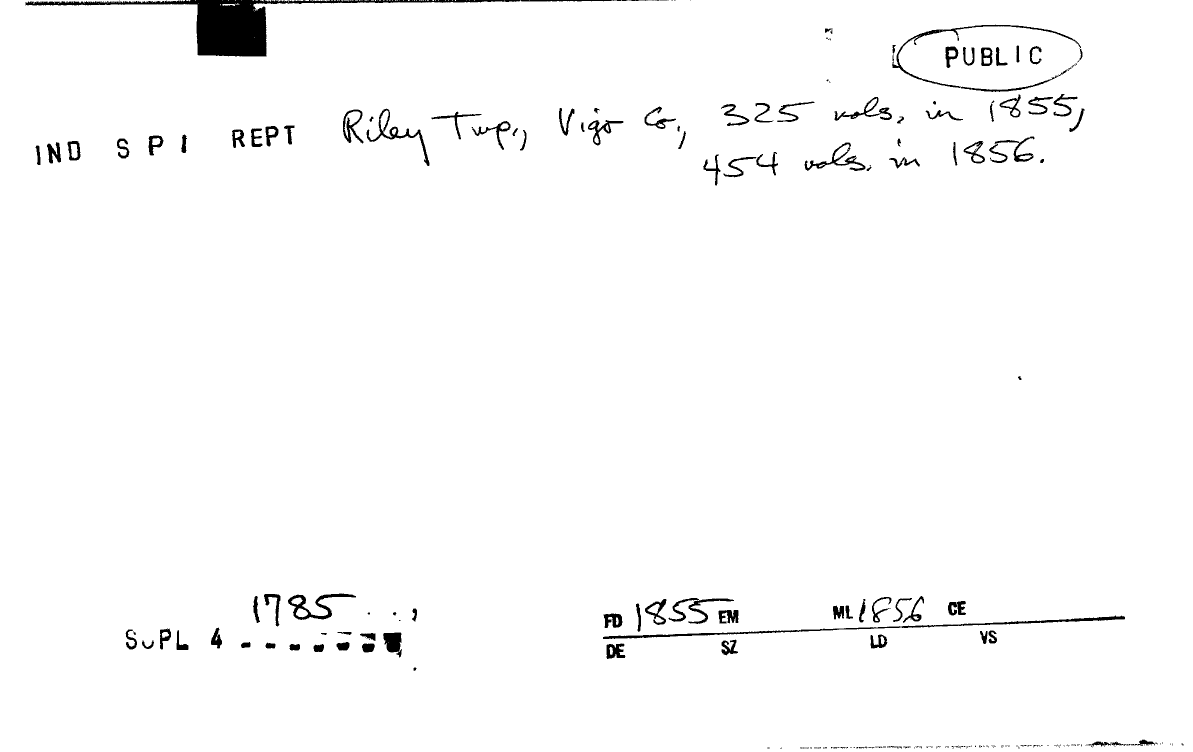 PUBLIC
IND S P I REPT Riley Twp., Vigo Co., 325 vols. in 1855,
454 vols. in 1856.
1785
SUPL 4
FD 1855 EM ML 1856 CE
DE SZ LD VS